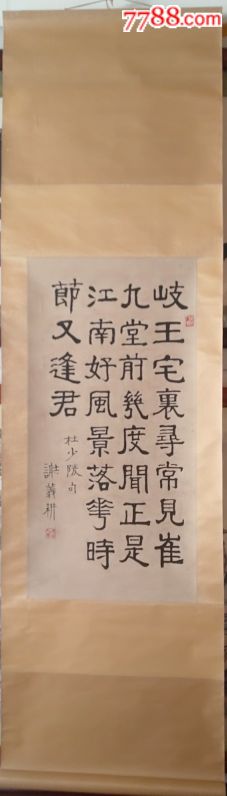 7788.com
岐王宅裏尋常見崔
九堂前幾度聞正是
江南好風景落華時
節又逢君
杜少陵句
謝義耕